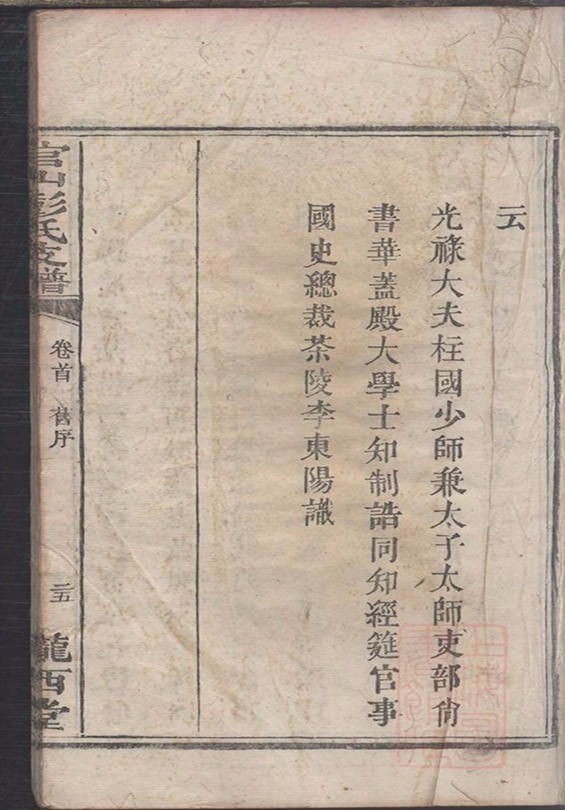 云
光祿大夫柱國少師兼太子太師吏部尙
書華蓋殿大學士知制誥同知經筵官事
國史總裁茶陵李東陽識
官山彭氏支譜
卷首 舊序
二五
隴西堂